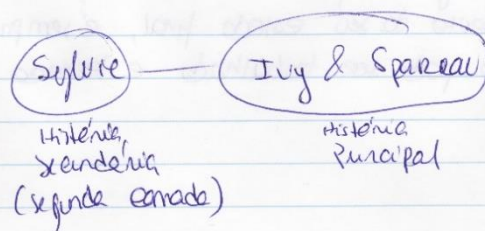 Sylvie
Ivy & Sparrow
História
Secundária
(segunda camada)
História
Principal